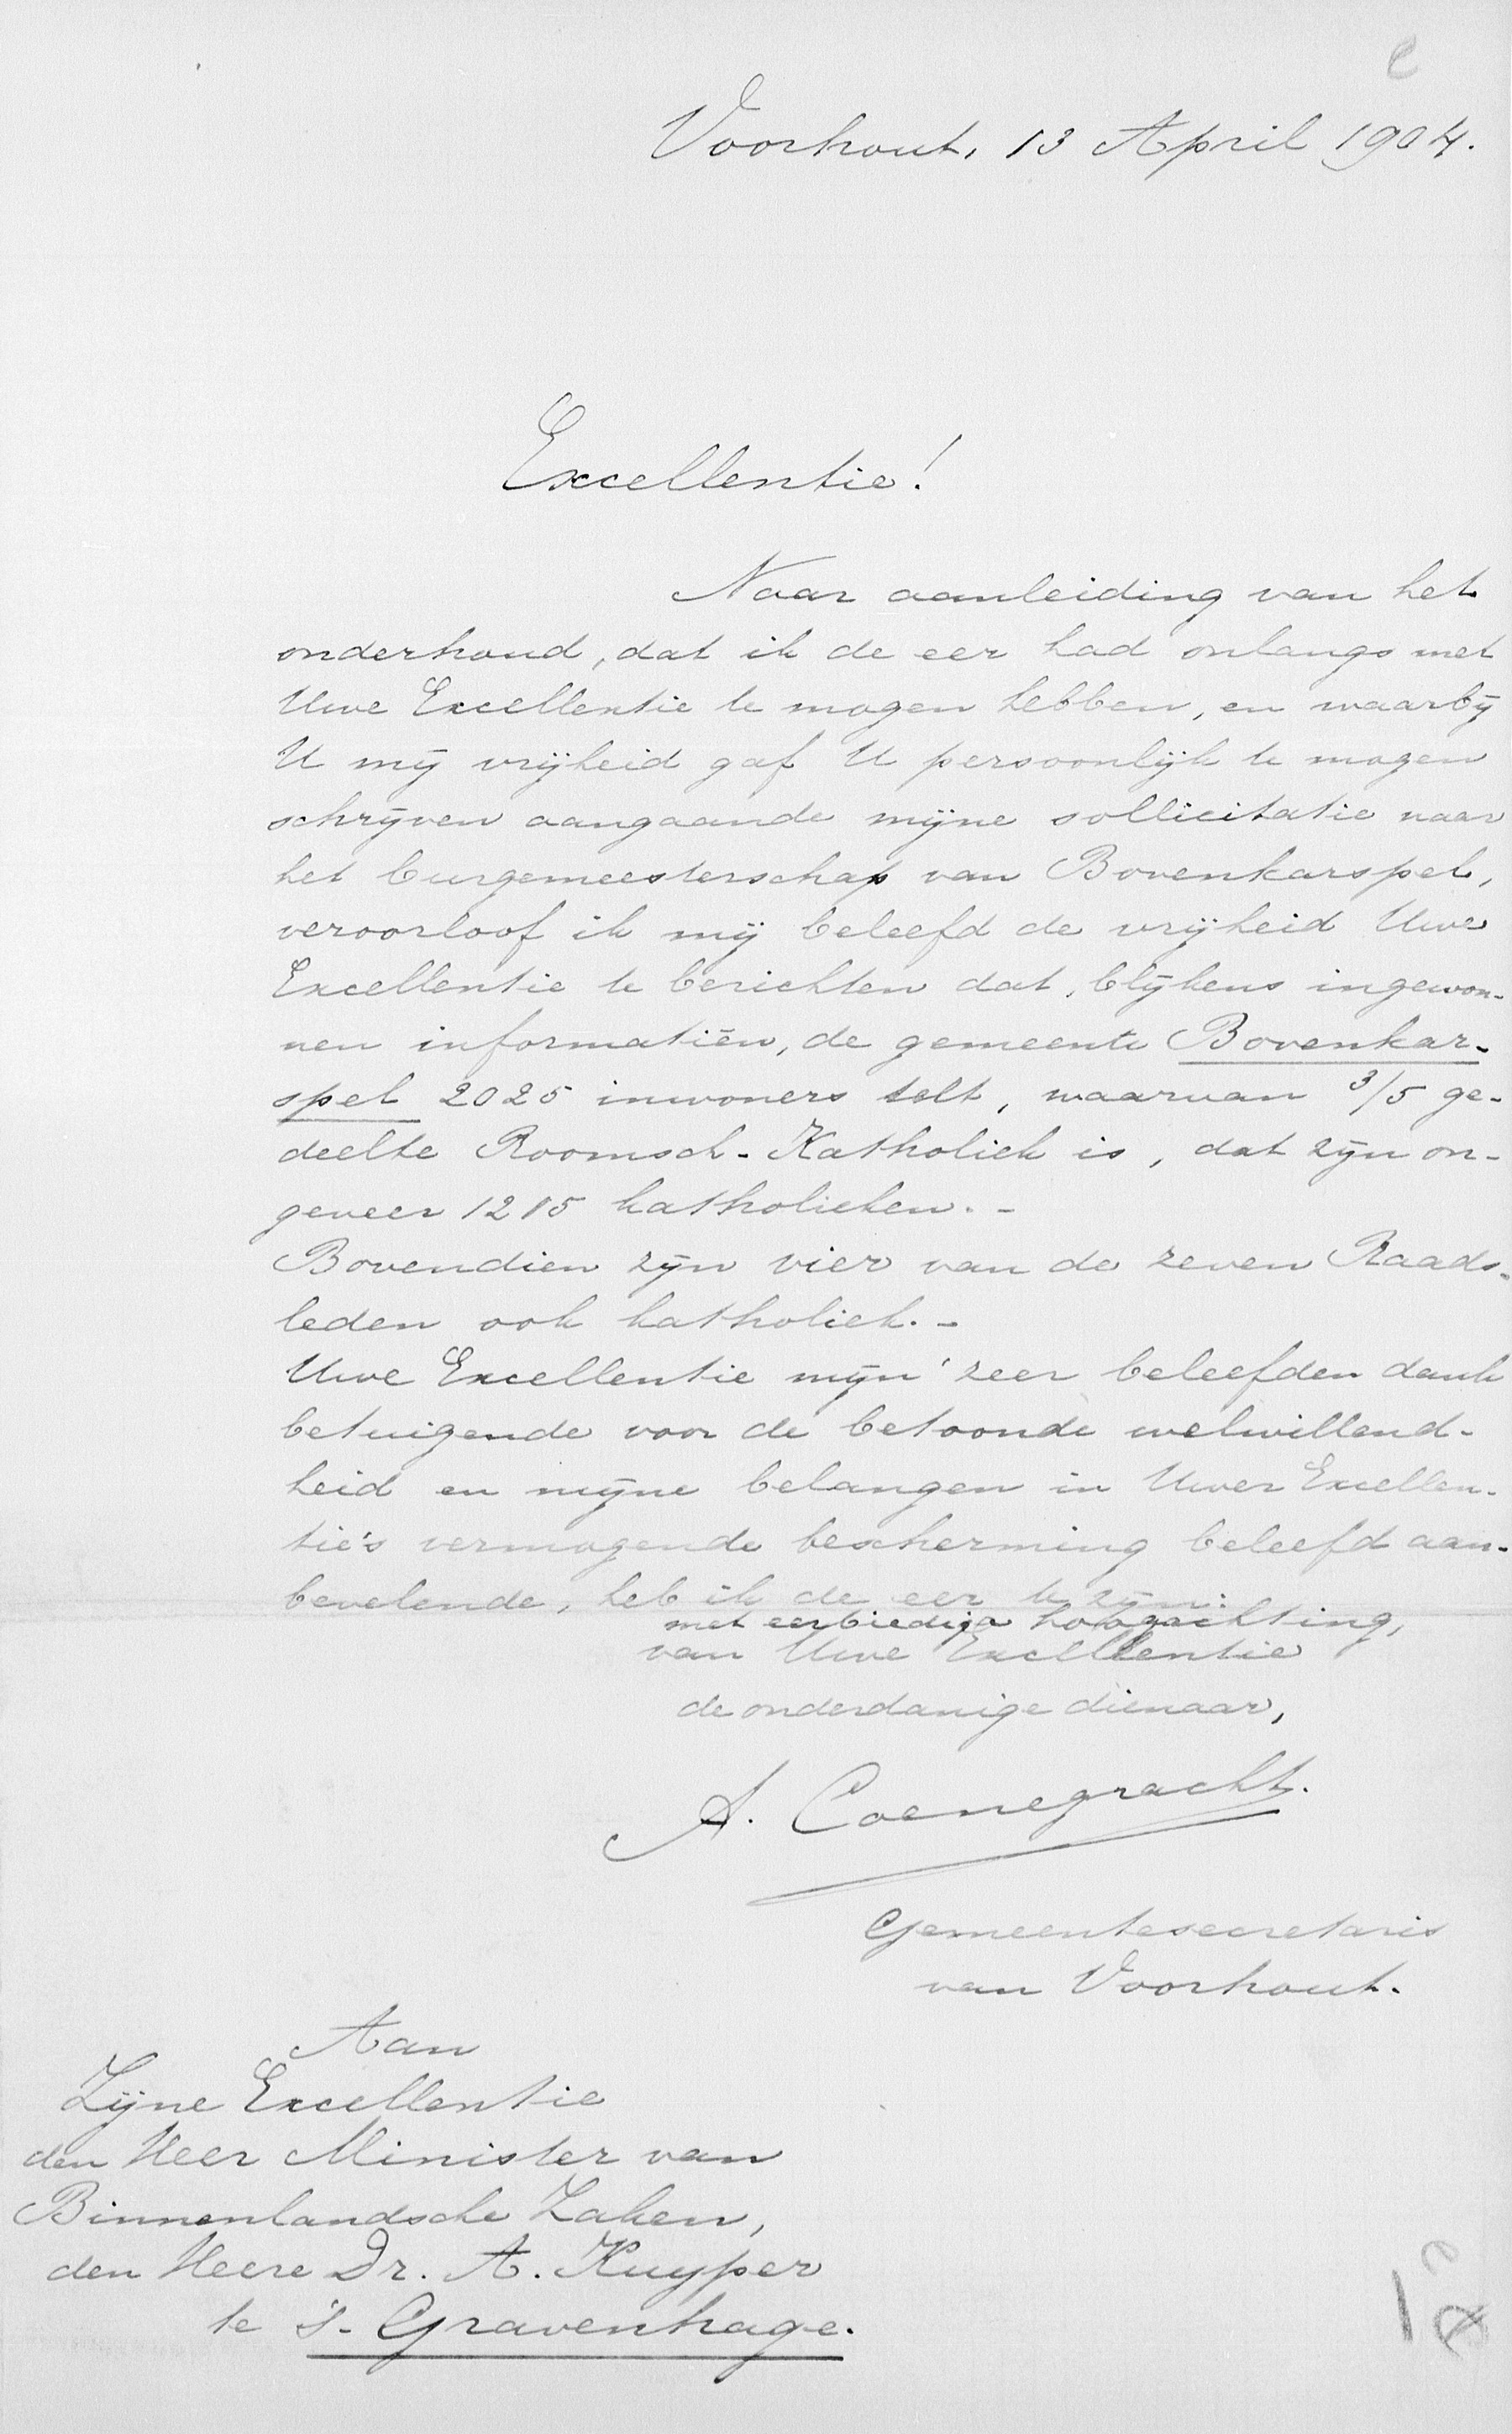 Voorhout, 13 April 1904.
Excellentie!
Naar aanleiding van het
onderhoud, dat ik de eer had onlangs met
Uwe Excellentie te mogen hebben, en waarbij
U mij vrijheid gaf U persoonlijk te mogen
schrijven aangaande mijne sollicitatie naar
het burgemeesterschap van Bovenkarspel,
veroorloof ik mij beleefd de vrijheid Uwe
Excellentie te berichten dat, blijkens ingewon-
nen informatiën, de gemeente Bovenkar-
spel 2025 inwoners telt, waarvan 3/5 ge-
deelte Roomsch-Katholiek is, dat zijn on-
geveer 1215 katholieken. -
Bovendien zijn vier van de zeven Raads-
leden ook katholiek. -
Uwe Excellentie mijn' zeer beleefden dank
betuigende voor de betoonde welwillend-
heid en mijne belangen in Uwer Excellen-
tie's vermogende bescherming beleefd aan-
bevelende, heb ik de eer te zijn:
met eerbiedige hoogachting,
van Uwe Excellentie
de onderdanige dienaar,
A. Coenegracht.
Gemeentesecretaris
van Voorhout.
Aan
Zijne Excellentie
den Heer Minister van
Binnenlandsche Zaken,
den Heere Dr. A. Kuyper
te 's-Gravenhage.